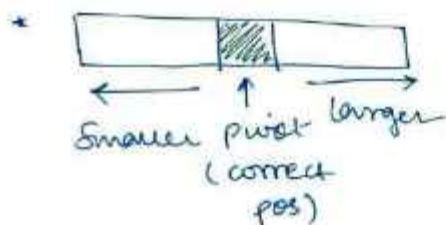 *
Smaller pivot larger
(correct
pos)